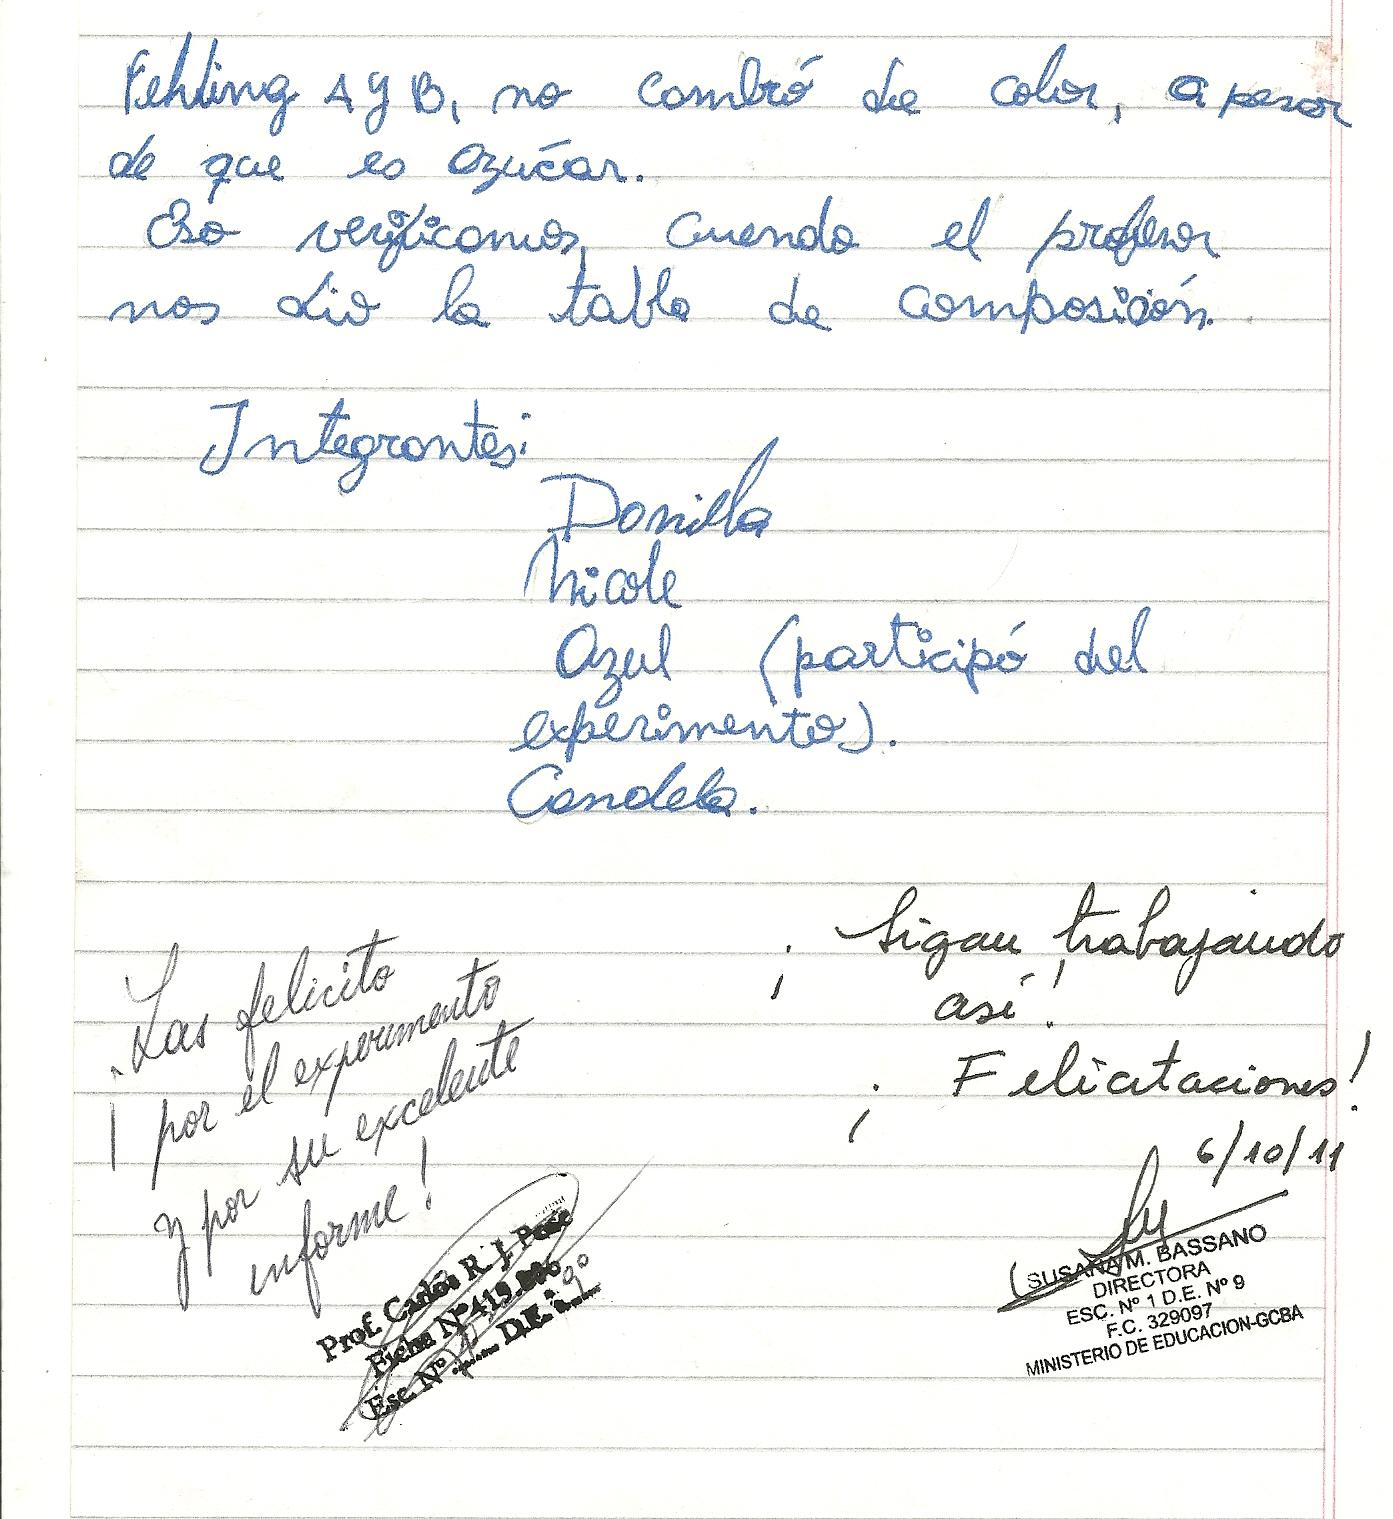 Fehling A y B, no cambró de color, a pesar
de que es azúcar.
Eso verificamos, cuando el profesor
nos dio la tabla de composición.
Integrantes:
Danilla
Nicole
Azul (participó del
experimento).
Candela.
¡Sigan trabajando
así!
¡Felicitaciones!
6/10/11
¡Las felicito
por el experimento
y por su excelente
informe!
Prof. Carlos R. J. Pose
Ficha Nº 419.806
Esc. Nº 1 D.E. 9º
SUSANA M. BASSANO
DIRECTORA
ESC. Nº 1 D.E. Nº 9
F.C. 329097
MINISTERIO DE EDUCACION-GCBA